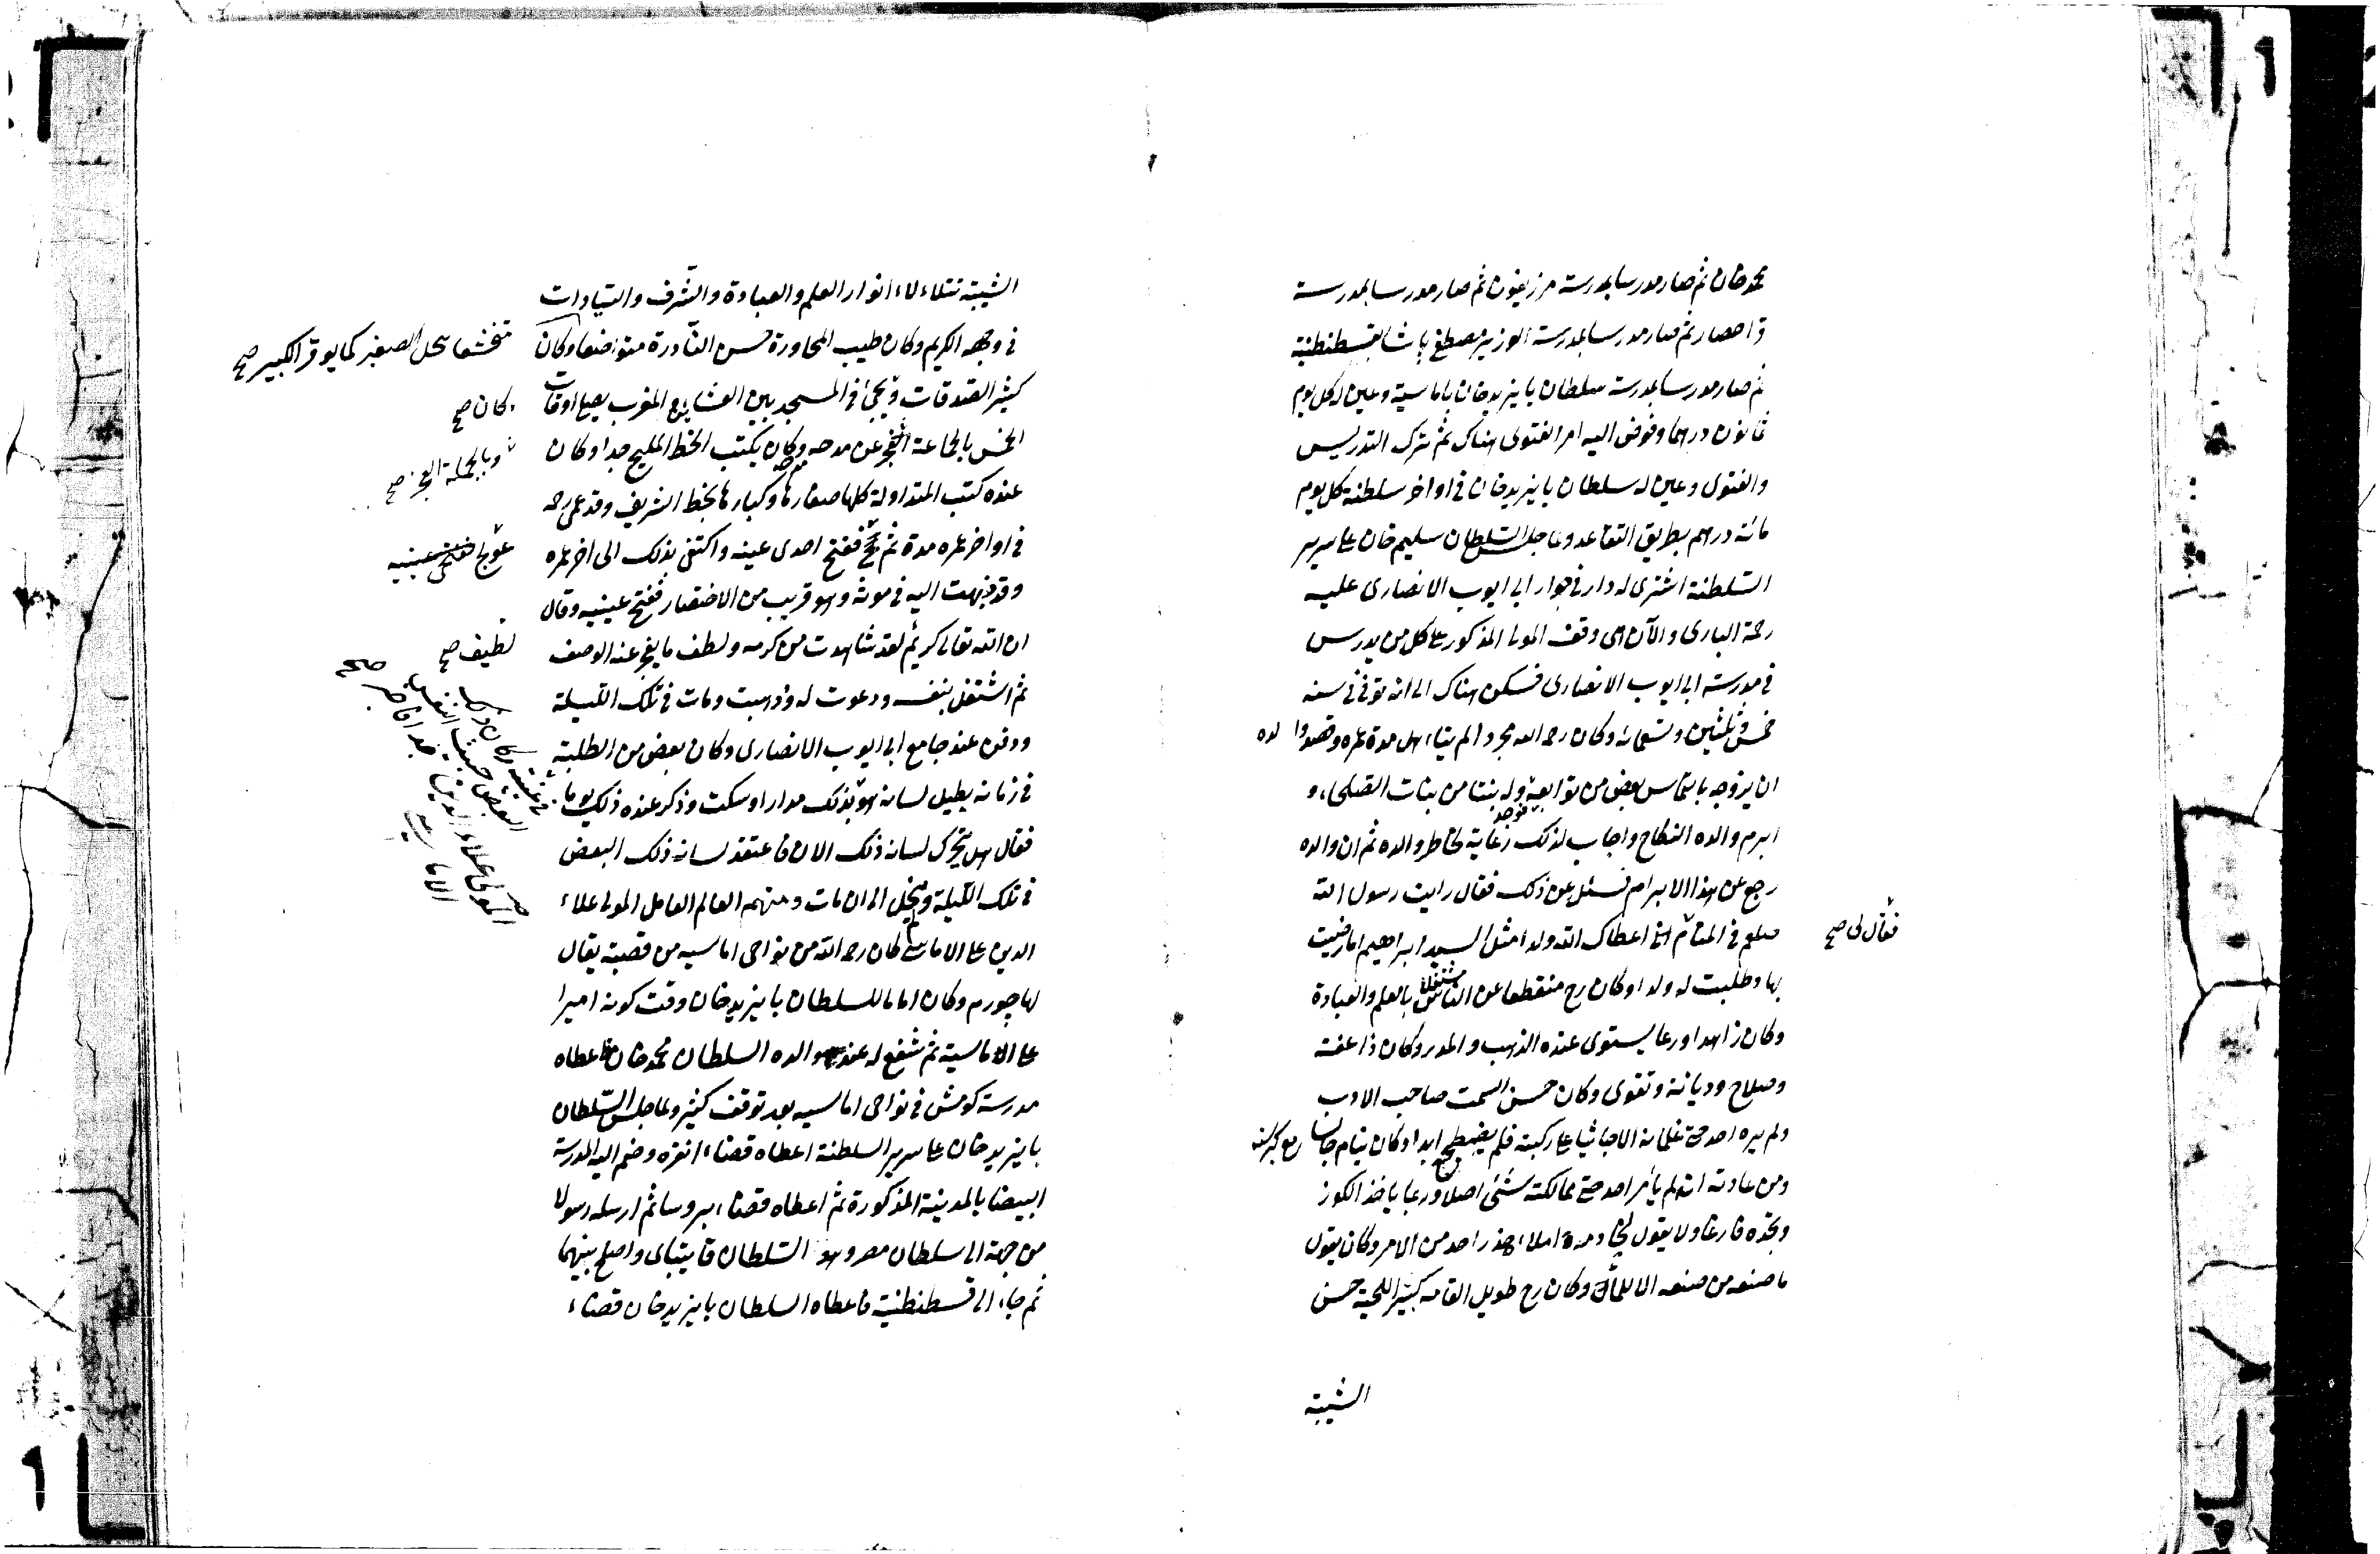 محمد خان ثم صار مدرسا بمدرسة مرزيفون ثم صار مدرسا بمدرسة
قراحصار ثم صار مدرسا بمدرسة الوزير مصطفى پاشا بقسطنطنية
ثم صار مدرسا بمدرسة سلطان بايزيد خان باماسية وعين له كل يوم
ثمانون درهما وفوض اليه امر الفتوى هناك ثم ترك التدريس
والفتوى وعين له سلطان بايزيد خان في اواخر سلطنته كل يوم
مائة درهم بطريق التقاعد ولما جلس السلطان سليم خان على سرير
السلطنة اشترى له دار في جوار ابي ايوب الانصارى عليه
رحمة البارى والآن هى وقف المولى المذكور على كل من يدرس
في مدرسة ابي ايوب الانصارى فسكن هناك الى انه توفى في سنه
خمس وثلثين وتسعمائه وكان رحمه الله مجردا لم يتاهل مدة عمره وقصد والده
ان يزوجه بالتماس بعض من توابعه وله بنتا من بنات الصلحاء و
ابرم والده النكاح واجاب لذلك رعاية لخاطر والده ثم ان والده
رجع عن هذا الابرام فسئل عن ذلك فقال رايت رسول الله
صلعم في المنام انى اعطاك الله ولدا مثل السيد ابراهيم اما رضيت
فقال لى صح
بها وطلبت له ولدا وكان رح منقطعا عن الناس مشتغلا بالعلم والعبادة
وكان زاهدا ورعا يستوى عنده الذهب والمدر وكان ذا عفة
وصلاح وديانة وتقوى وكان حسن السمت صاحب الادب
ولم يره احد حتى غلمانه الا جاثيا على ركبته فلم يضطجع ابدا وكان ينام جالسا مع كبر سنه
ومن عادته انه لم يأمر احد حتى مماليكه شئ اصلا وربما ياخذ الكوز
ويجده فارغا ولا يقول لخادمه املاء حذرا احد من الامر وكان يقول
ما صنعه من صنعه الا للماء وكان رح طويل القامه كبير اللحية حسن
الشيبة
الشيبة تتلاءلاء انوار العلم والعبادة والشرف والسيادات
في وجهه الكريم وكان طيب المحاورة حسن النادرة متواضعا وكان
متخشعا يجل الصغير كما يوقر الكبير صح
كثير الصدقات ويجئ في المسجد بين العشايين المغرب يصلى اوقات
وكان صح
الخمس بالجماعة العجز عن مدحه وكان يكتب الخط المليح جدا وكان
وبالجملة العجز صح
عنده كتب المتداولة كلها صغارها وكبارها بخط الشريف وقد عمى رحمه
في اواخر عمره مدة ثم فتح احدى عينه واكتفى بذلك الى اخر عمره
وقد ذهبت اليه في موته وهو قريب من الاختصار ففتح عينيه وقال
ان الله تعالى كريم لقد شاهدت من كرمه ولطف ما يعجز عنه الوصف
لطيف صح
ثم اشتغل بنفسه ودعوت له وذهبت ومات في تلك الليلة
ودفن عند جامع ابي ايوب الانصارى وكان بعض من الطلبة
في زمانه يطيل لسانه هو بذلك مدارا وسكت وذكر عنده ذلك يوما
فقال هل يتحرك لسانه ذلك الان فاعتقد لسانه ذلك البعض
في تلك الليلة الى ان مات ومنهم العالم العامل المولى علاء
الدين على الاماسى كان رحمه الله من نواحى اماسيه من قصبة يقال
لها چورم وكان اماما للسلطان بايزيد خان وقت كونه اميرا
على الاماسية ثم شفع له عند والده السلطان محمد خان فاعطاه
مدرسة كومش في نواحى اماسيه بعد توقف كثير ولما جلس السلطان
بايزيد خان على سرير السلطنة اعطاه قضاء انقره وضم اليه المدرسة
البيضا بالمدينة المذكورة ثم اعطاه قضاء بروسا ثم ارسله رسولا
من جهة الى سلطان مصر وهو السلطان قايتباى واصلح بينهما
ثم جاء الى قسطنطنية فاعطاه السلطان بايزيد خان قضاء